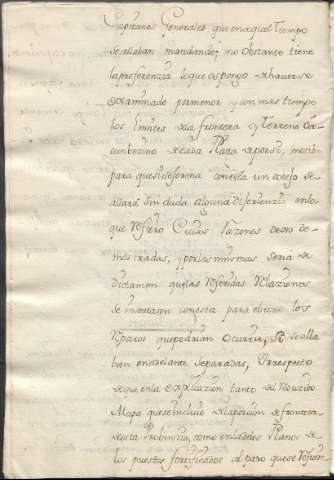 Capitanes Generales que en aquel tiempo
se allaban mandando; no obstante tiene
la preferenzia lo que espongo de haverse
exsaminado por menor y con mas tiempo
los limites de la frontera y Terreno Cir-
cumbezino de cada Plaza de por si, motibo
para que si se forma con esta un cotejo se
allará sin duda alguna diferienzia en lo
que refiero Cuias razones dexo de-
mostradas, y por las mismas seria de
dictamen que las referidas Relaziones
se insertasen con esta para obiar los
reparos que podrian ocurrir, si se alla-
ban en adelante separadas, y respecto
de que en la explicazion tanto del reduzido
Mapa que se incluie de la porzion de frontera
de esta Probinzia, como en la de los Planos de
los puestos fortificados al paso que se refieren